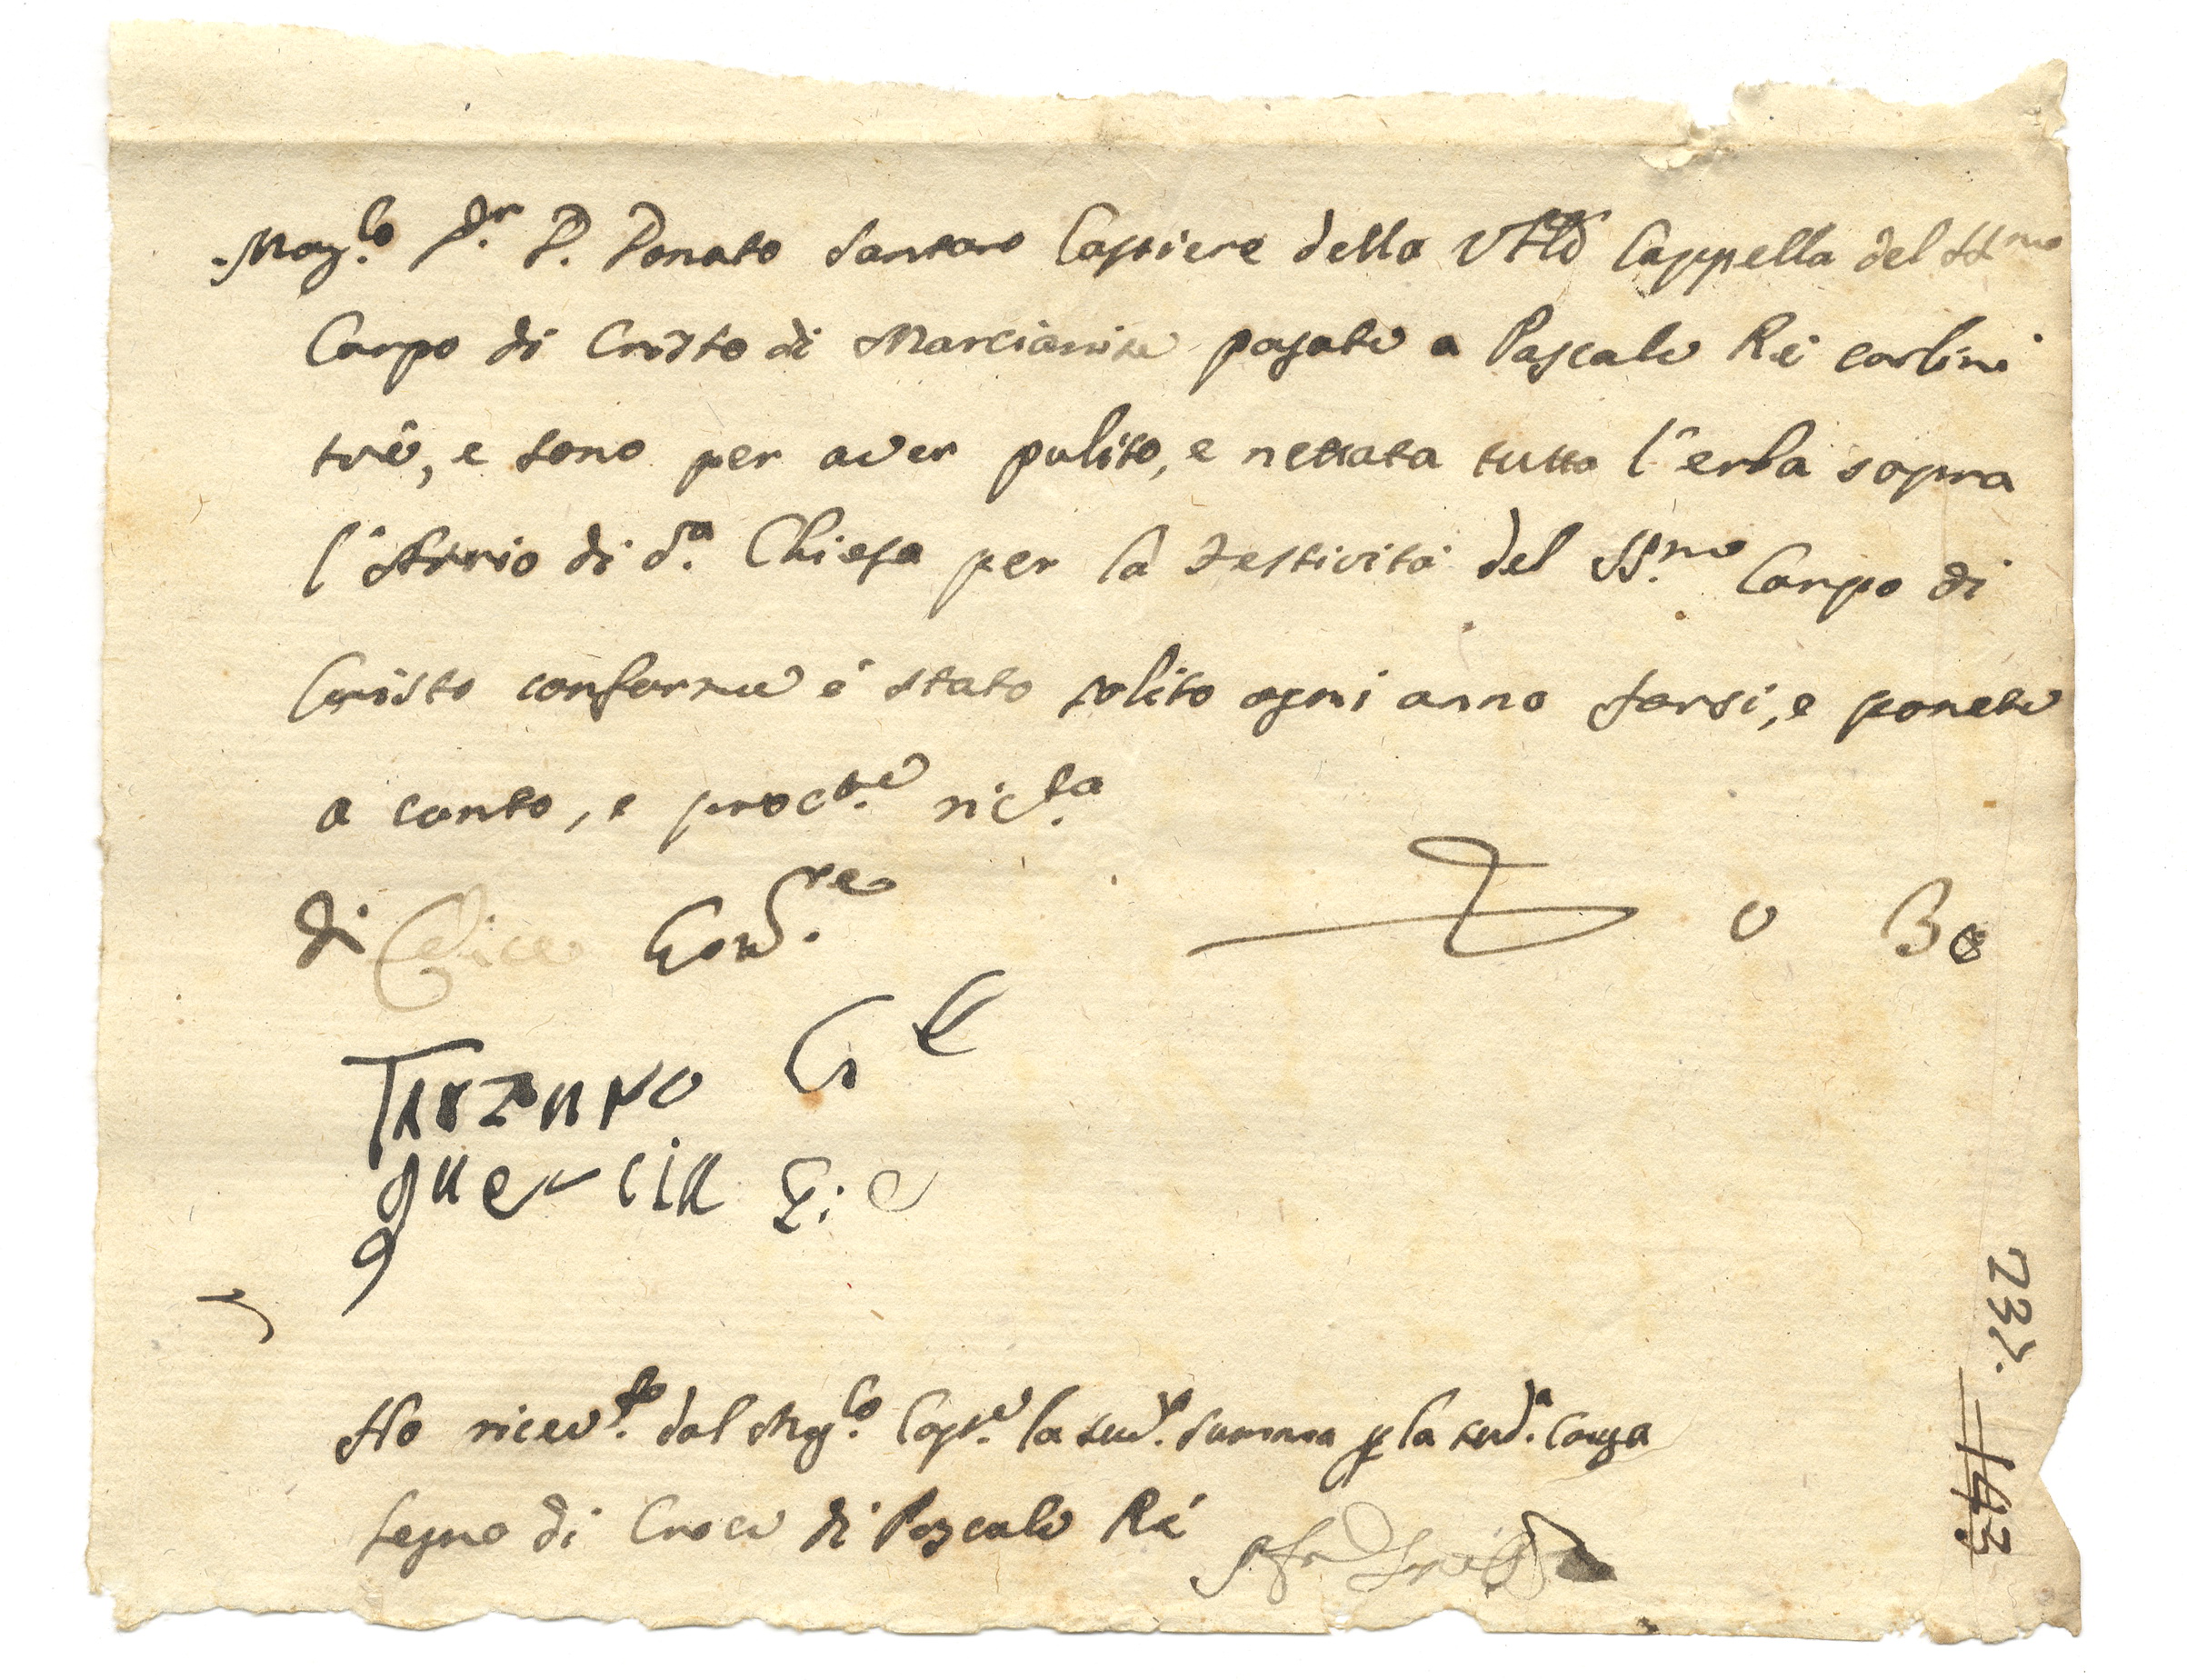 Mag.co Dr. D. Donato Santoro Cassiere della Cappella del SS.mo
Corpo di Cristo di Marcianise pagate a Pascale Rè carlini
trè, e sono per aver pulito, e nettata tutta l'erba sopra
l'Atrio di d.a Chiesa per la Festività del SS.mo Corpo di
Cristo conforme è stato solito ogni anno farsi, e ponete
a conto, e proc.te ric.ta
di Gov.re
D 0 30
Tarzano
Guercia
Ho ricev.to dal Mag.co Cass.e la sud.a summa p la sud.a causa
Segno di Croce di Pascale Rè
237. 143